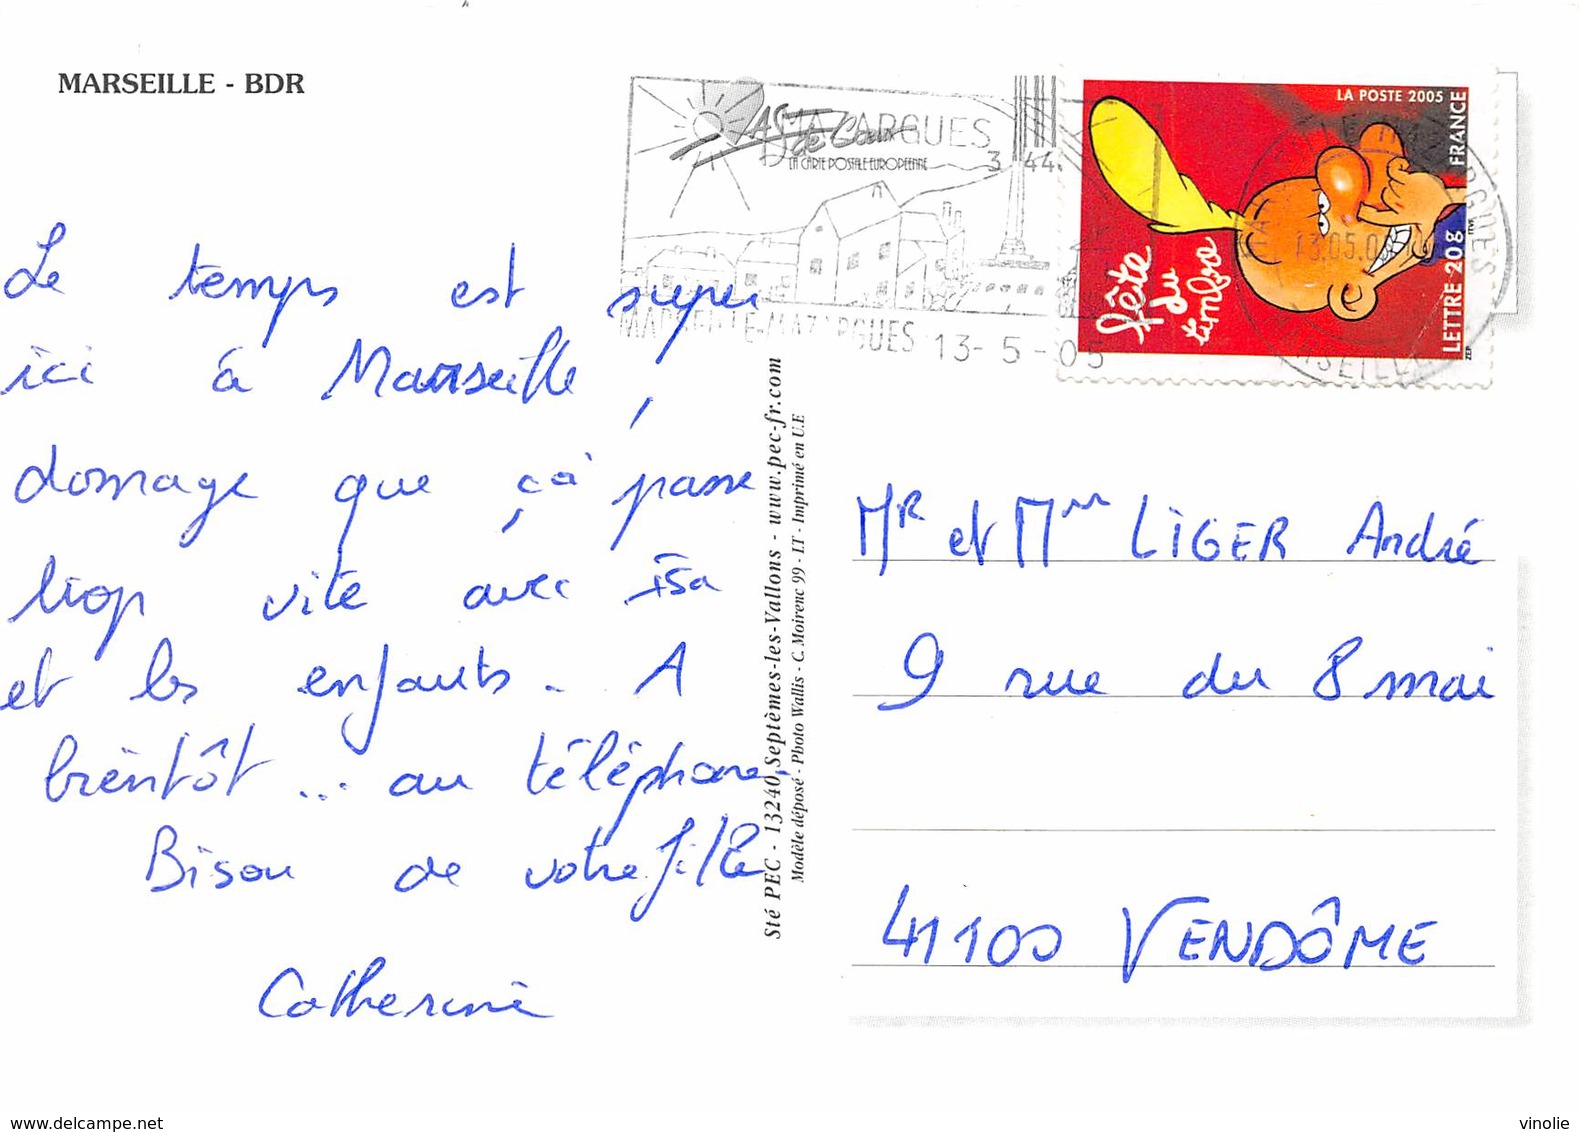 MARSEILLE - BDR
MAZARGUES
de Cœur
LA CARTE POSTALE EUROPEENNE
3 44
MARSEILLE-MAZARGUES 13-5-05
LA POSTE 2005
FRANCE
LETTRE 20g
fête
du
timbre
ZEP
13.05.05
MARSEILLE
Le temps est super
ici à Marseille,
domage que çà passe
trop vite avec Isa
et les enfants. A
bientôt ... au téléphone.
Bisou de votre fille
Catherine
Sté PEC - 13240 Septèmes-les-Vallons - www.pec-fr.com
Modèle déposé - Photo Wallis - C. Moirenc 99 - I.T - Imprimé en U.E
Mr et Mme LIGER André
9 rue du 8 mai
41100 VENDÔME
www.delcampe.net
vinolie